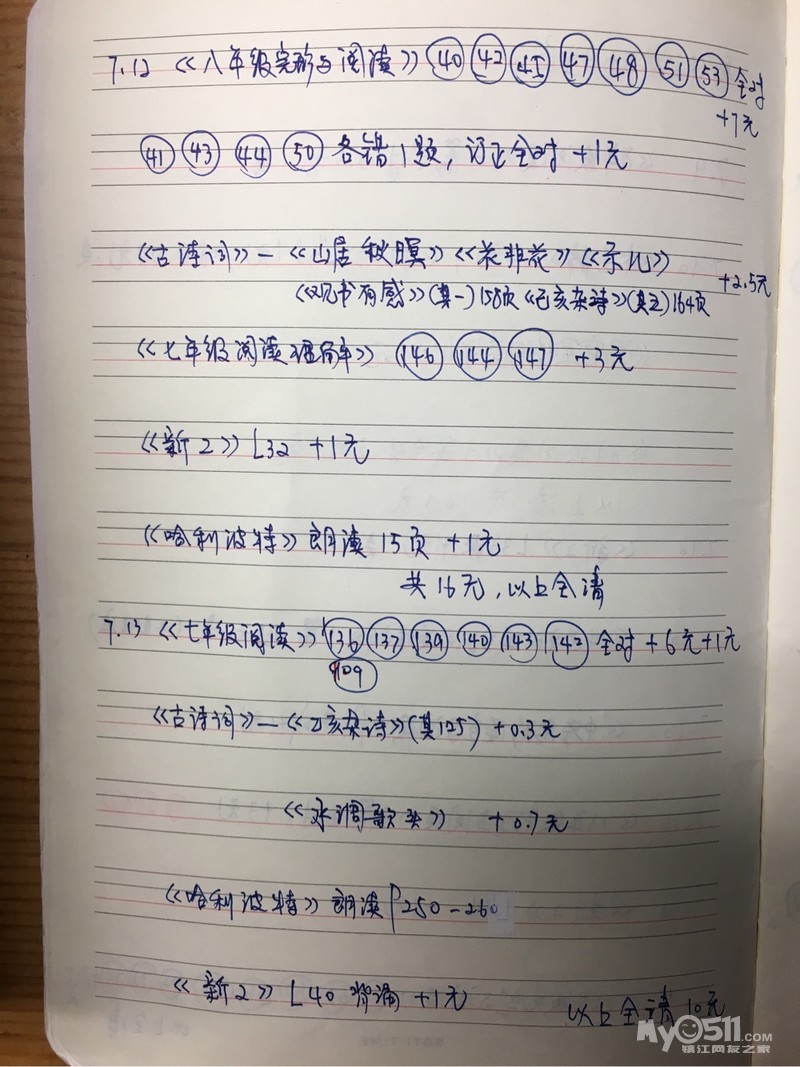 7.12 《八年级完形与阅读》 40 42 45 47 48 51 53 全对
+7元
41 43 44 50 各错1题，订正全对 +1元
《古诗词》—《山居秋暝》《花非花》《示儿》
+2.5元
《观书有感》(其一)158页《己亥杂诗》(其五)164页
《七年级阅读理解》 146 144 147 +3元
《新2》L32 +1元
《哈利波特》朗读15页 +1元
共16元，以上全清
7.13 《七年级阅读》136 137 139 140 143 142 全对 +6元+1元
109
《古诗词》—《己亥杂诗》(其125) +0.3元
《水调歌头》 +0.7元
《哈利波特》朗读P250-260
《新2》L40 背诵 +1元
以上全清 10元
My0511.com
镇江网友之家